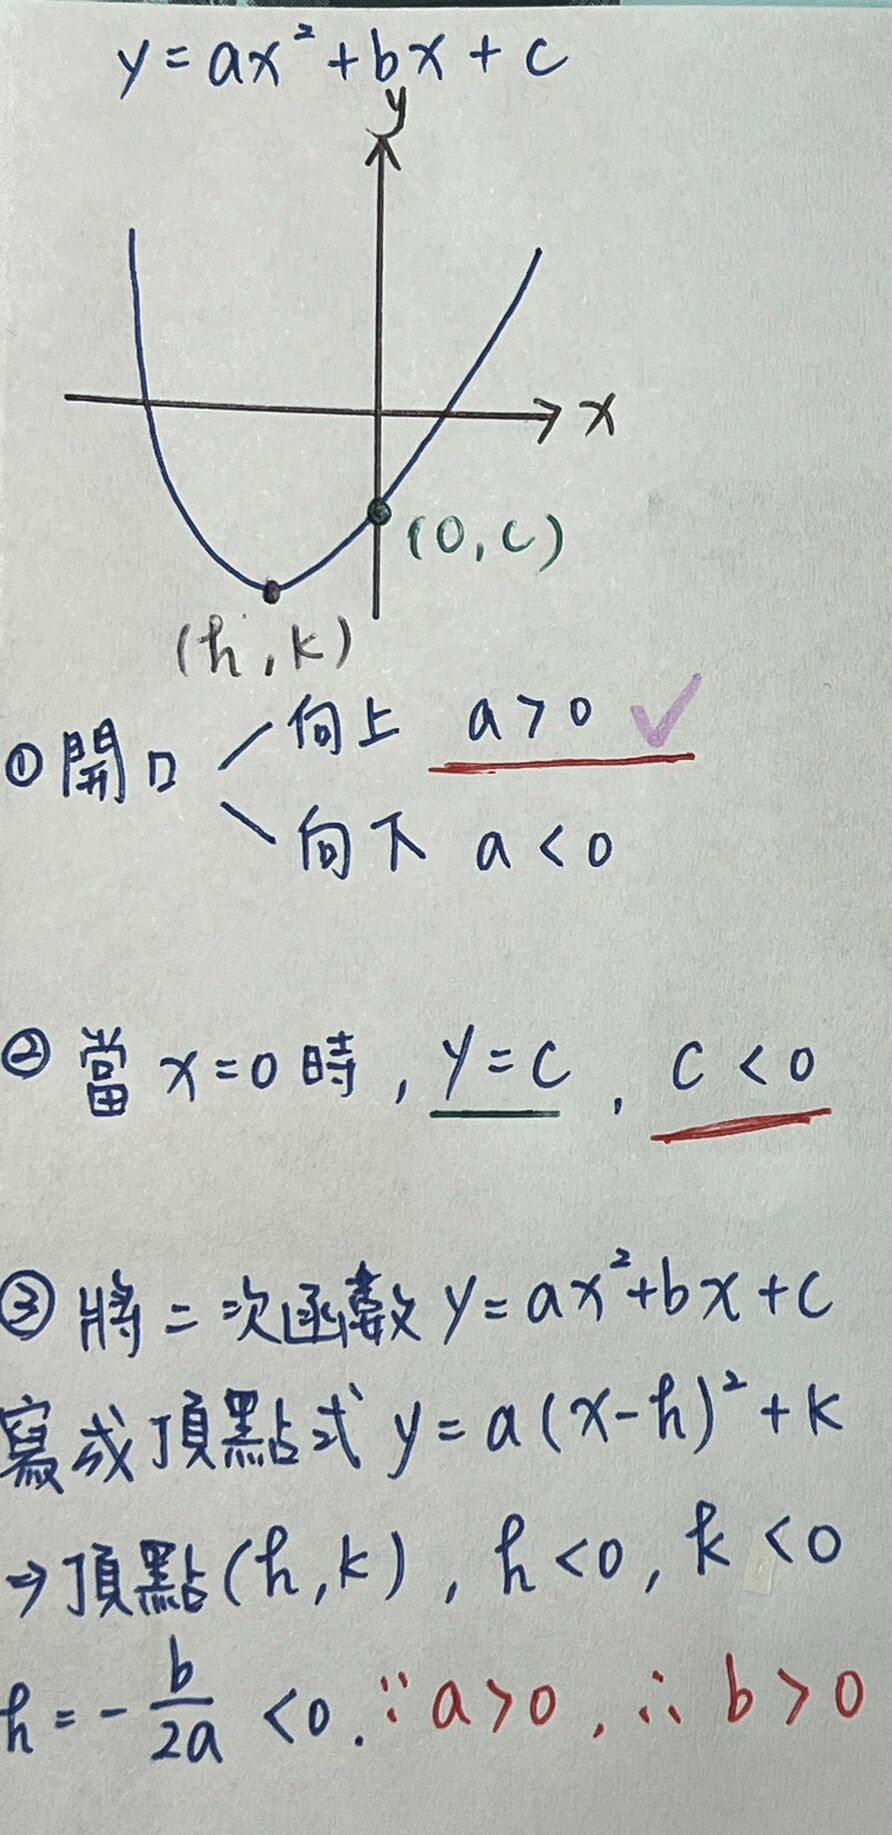 y = ax² + bx + c
y
x
(0, c)
(h, k)
① 開口 向上 a > 0 ✓
向下 a < 0
② 當 x = 0 時, y = c, c < 0
③ 將二次函數 y = ax² + bx + c
寫成頂點式 y = a(x-h)² + k
→ 頂點(h, k), h < 0, k < 0
h = -b/2a < 0. ∵ a > 0, ∴ b > 0